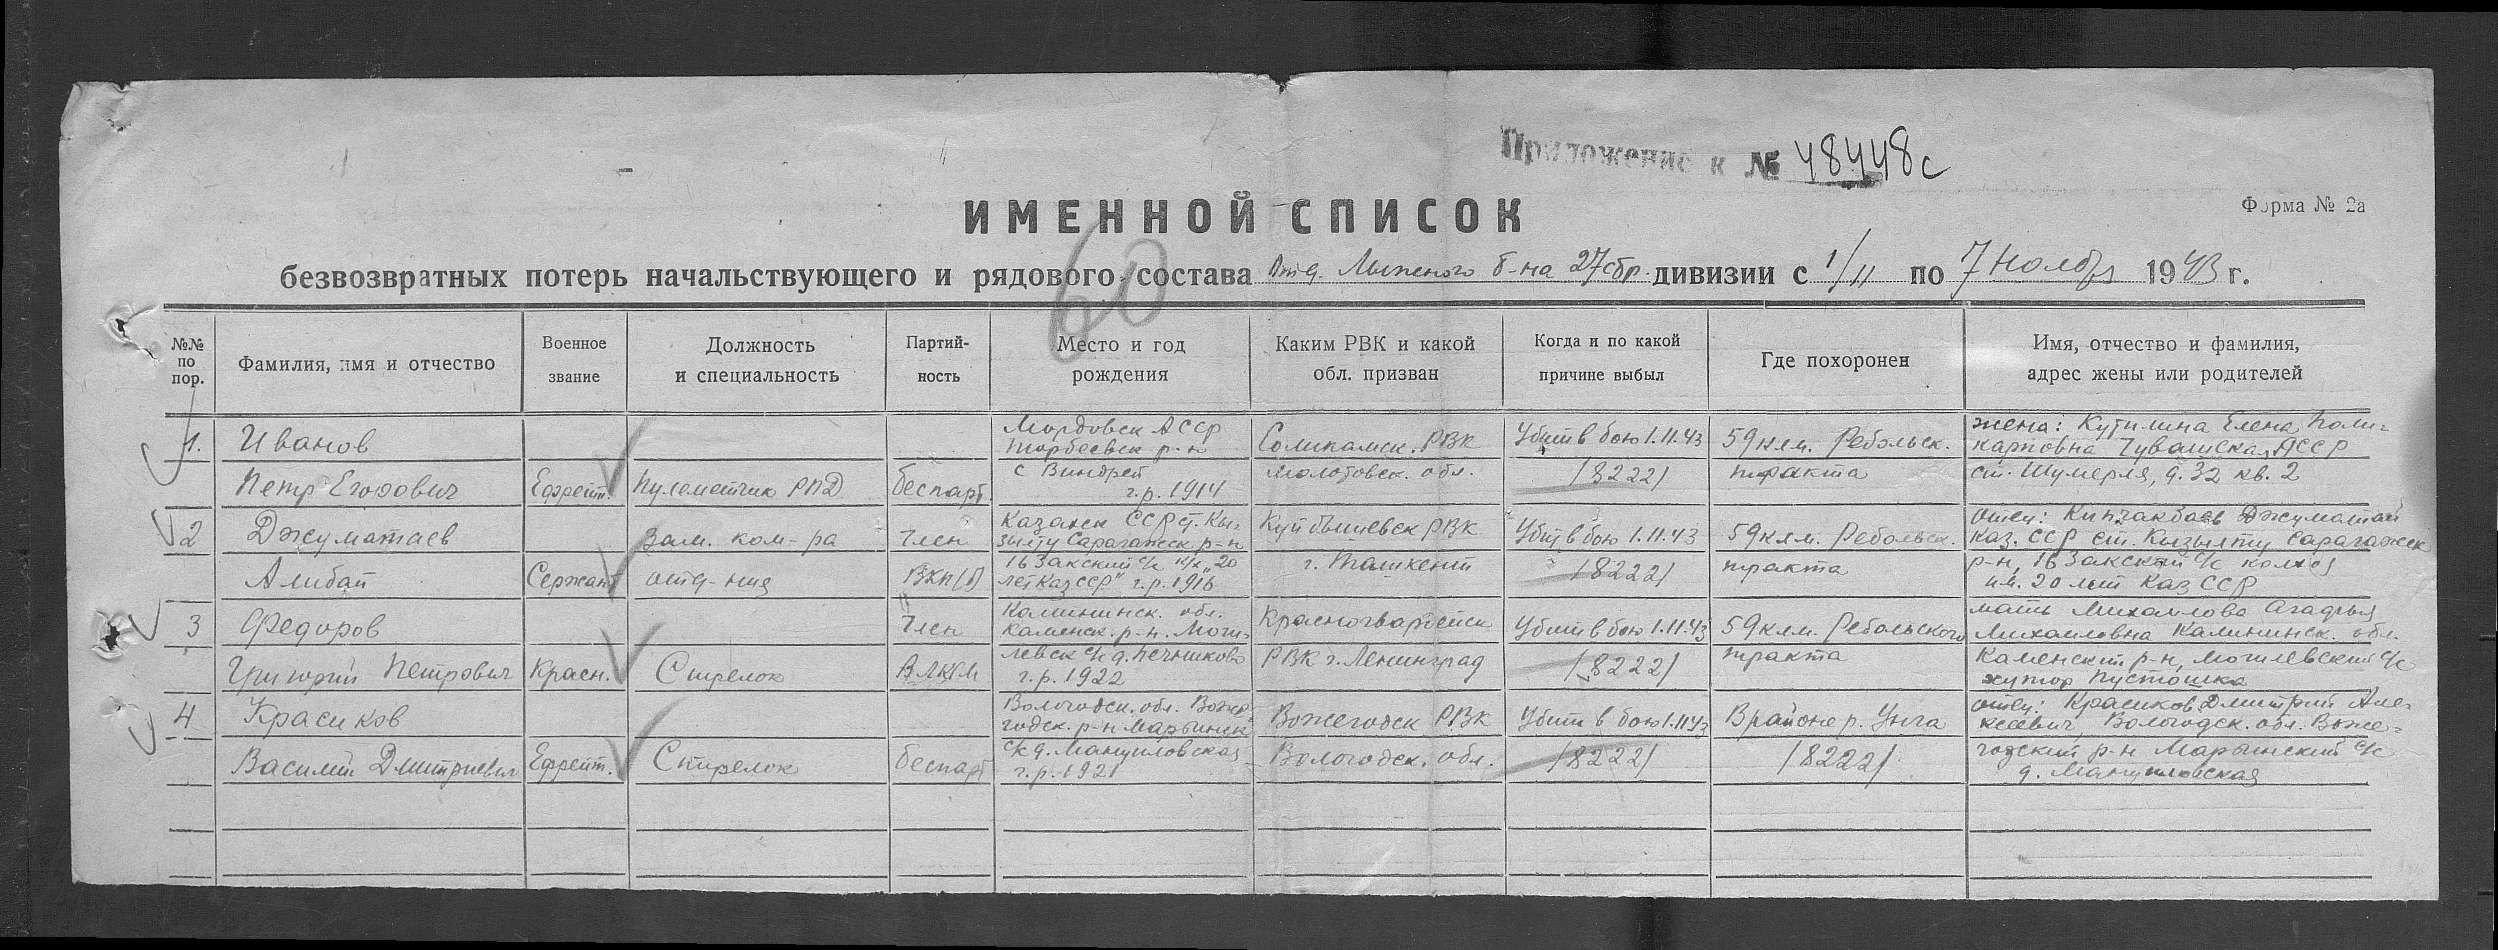 Приложение к № 48448с
ИМЕННОЙ СПИСОК
Форма № 2а
безвозвратных потерь начальствующего и рядового состава Отд. Лыжного б-на 27 сбр. дивизии с 1/11 по 7 Ноября 1943 г.
60
№№ по пор.
Фамилия, имя и отчество
Военное звание
Должность и специальность
Партий-ность
Место и год рождения
Каким РВК и какой обл. призван
Когда и по какой причине выбыл
Где похоронен
Имя, отчество и фамилия, адрес жены или родителей
1.
Иванов
Петр Егорович
Ефрейт.
Пулеметчик РПД
беспарт.
Мордовск АССР
Торбеевск р-н
с Виндрей
г.р. 1914
Соликамск. РВК
Молотовск. обл.
Убит в бою 1.11.43
/8222/
59 клм. Ребольск.
тракта
жена: Кутилина Елена Поли-
карповна Чувашская АССР
ст. Шумерля, д. 32 кв. 2
2
Джуматаев
Алибай
Сержант
Зам. ком-ра
отд-ния
Член
ВКП(б)
Казахск ССР ст. Кы-
зылту Сарагажск р-н
16 Закский с/с к/х "20
лет Каз ССР" г.р. 1916
Куйбышевск РВК
г. Ташкент
Убит в бою 1.11.43
/8222/
59 клм. Ребольск.
тракта
отец: Кипчакбаев Джуматай
Каз. ССР ст. Кызылту Сарагажск
р-н, 16 Закский с/с колхоз
им. 20 лет Каз ССР
3
Федоров
Григорий Петрович
Красн.
Стрелок
Член
ВЛКСМ
Калининск. обл.
Каменск. р-н. Моги-
левск с/с д. Печниково
г.р. 1922
Красногвардейск
РВК г. Ленинград
Убит в бою 1.11.43
/8222/
59 клм. Ребольского
тракта
мать Михайлова Агафья
Михайловна Калининск. обл.
Каменский р-н, Могилевский с/с
хутор Пустошка
4
Красиков
Василий Дмитриевич
Ефрейт.
Стрелок
беспарт
Вологодск. обл. Воже-
годск. р-н Марьинск
с/с д. Мануиловская
г.р. 1921
Вожегодск РВК
Вологодск. обл.
Убит в бою 1.11.43
/8222/
В районе р.
/8222/
отец: Красиков Дмитрий Але-
ксеевич, Вологодск. обл. Воже-
годский р-н Марьинский с/с
д. Мануиловская